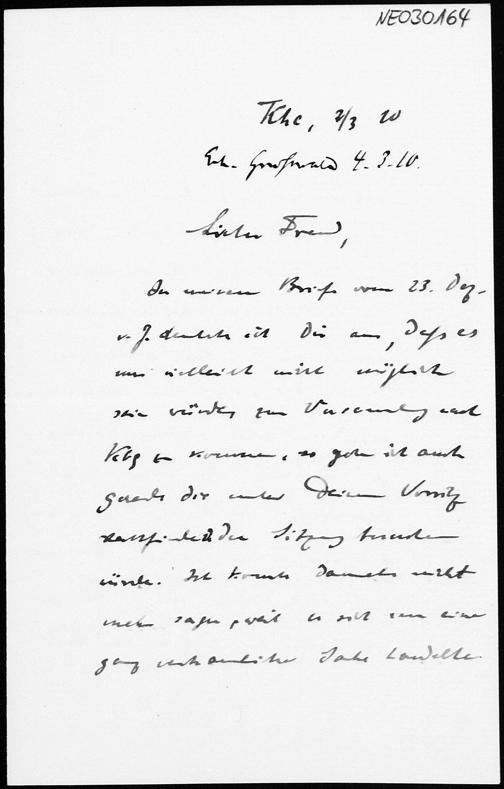 NE030164
Khe, 2/3 10
Erh. Greifswald 4.3.10.
Lieber Freund,
In meinem Briefe vom 23. Dez.
v. J. deutete ich Dir an, dass es
mir vielleicht nicht möglich
sein würde, zur Versammlung nach
Kbg zu kommen, so gern ich auch
gerade die unter Deinem Vorsitz
stattfindende Sitzung besuchen
würde. Ich konnte damals nicht
mehr sagen, weil es sich um eine
ganz vertrauliche Sache handelte